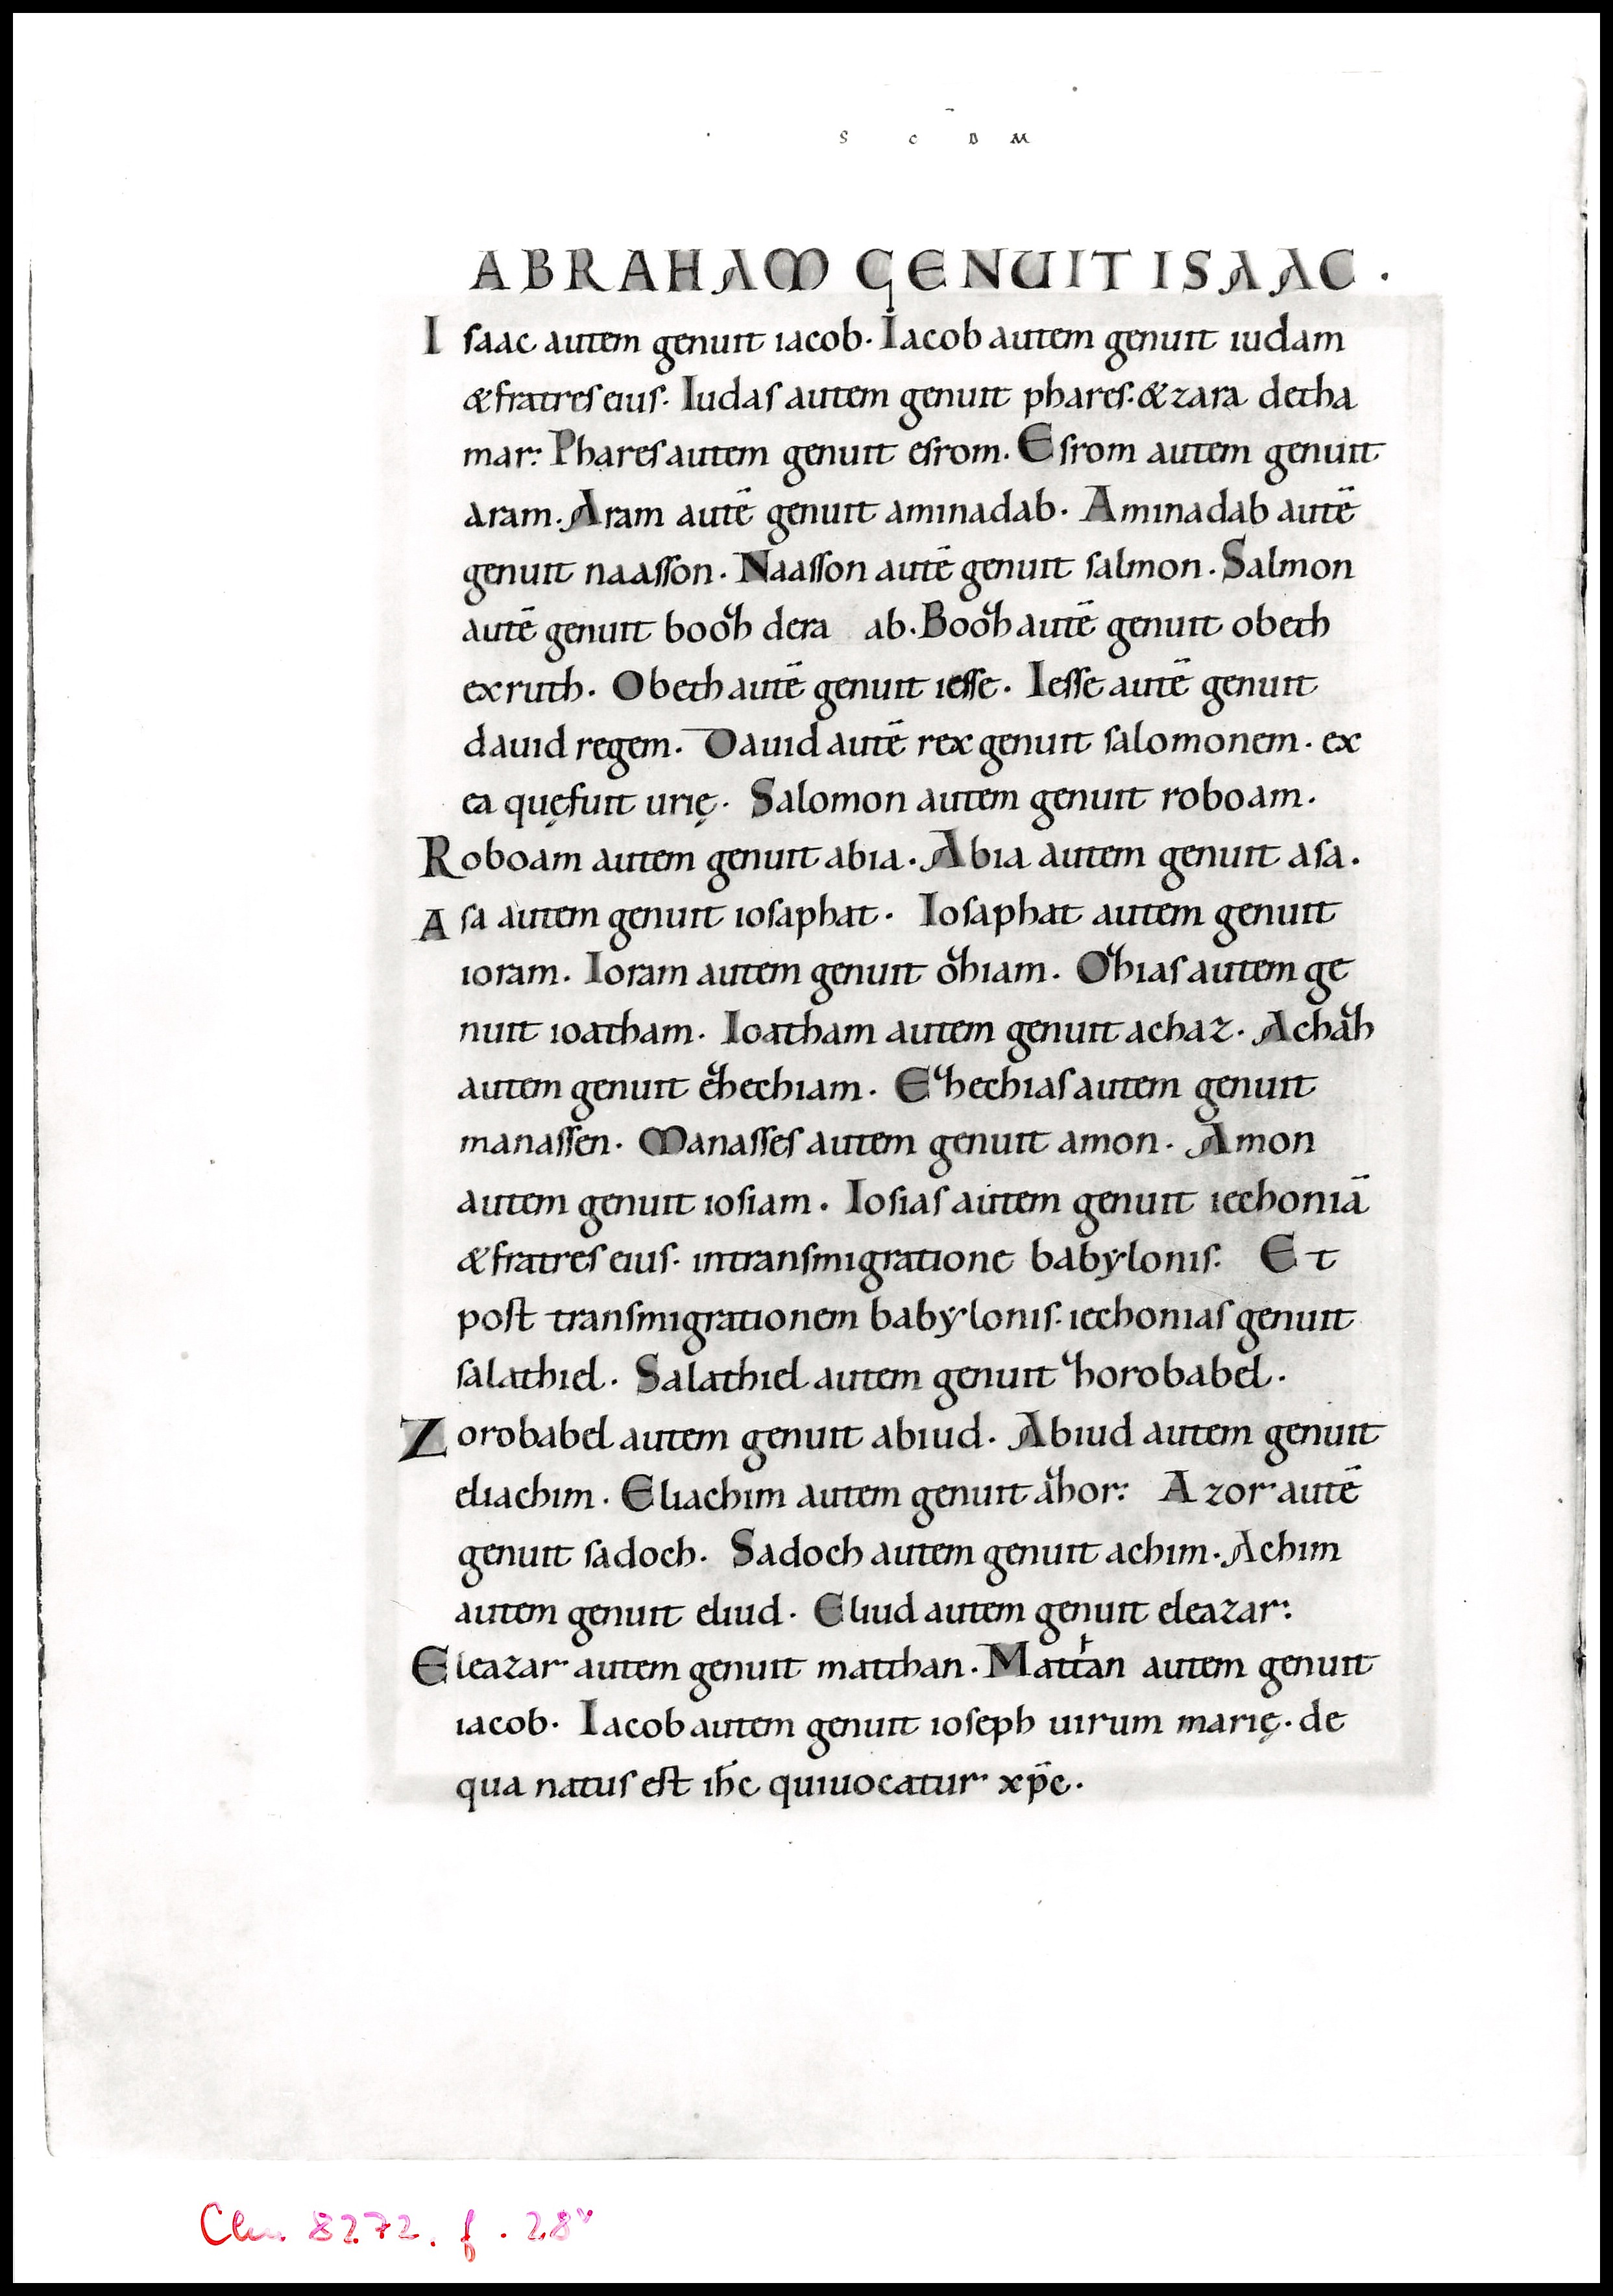 S C B M
ABRAHAM GENUIT ISAAC .
Isaac autem genuit iacob. Iacob autem genuit iudam
& fratres eius. Iudas autem genuit phares. & zara detha
mar. Phares autem genuit esrom. Esrom autem genuit
aram. Aram autē genuit aminadab. Aminadab autē
genuit naasson. Naasson autē genuit salmon. Salmon
autē genuit booz dera ab. Booz autē genuit obeth
ex ruth. Obeth autē genuit iesse. Iesse autē genuit
dauid regem. Dauid autē rex genuit salomonem. ex
ea quę fuit urię. Salomon autem genuit roboam.
Roboam autem genuit abia. Abia autem genuit asa.
Asa autem genuit iosaphat. Iosaphat autem genuit
ioram. Ioram autem genuit oziam. Ozias autem ge
nuit ioatham. Ioatham autem genuit achaz. Achaz
autem genuit ezechiam. Ezechias autem genuit
manassen. Manasses autem genuit amon. Amon
autem genuit iosiam. Iosias autem genuit iechoniā
& fratres eius. in transmigratione babylonis. Et
post transmigrationem babylonis. iechonias genuit
salathiel. Salathiel autem genuit zorobabel.
Zorobabel autem genuit abiud. Abiud autem genuit
eliachim. Eliachim autem genuit azor. Azor autē
genuit sadoch. Sadoch autem genuit achim. Achim
autem genuit eliud. Eliud autem genuit eleazar.
Eleazar autem genuit matthan. Mattan autem genuit
iacob. Iacob autem genuit ioseph uirum marię. de
qua natus est ih̄c qui uocatur xp̄c.
Clm. 8272. f. 28v